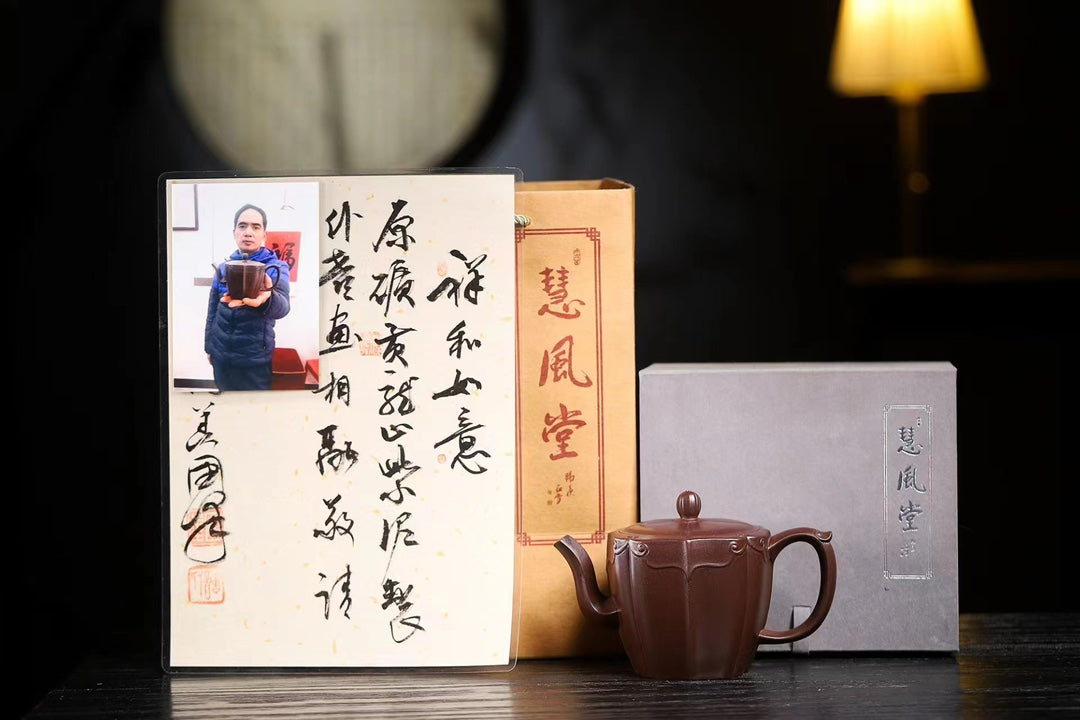 祥和如意
原礦黄龍山紫泥製
画相融敬請
福
慧風堂
慧風堂